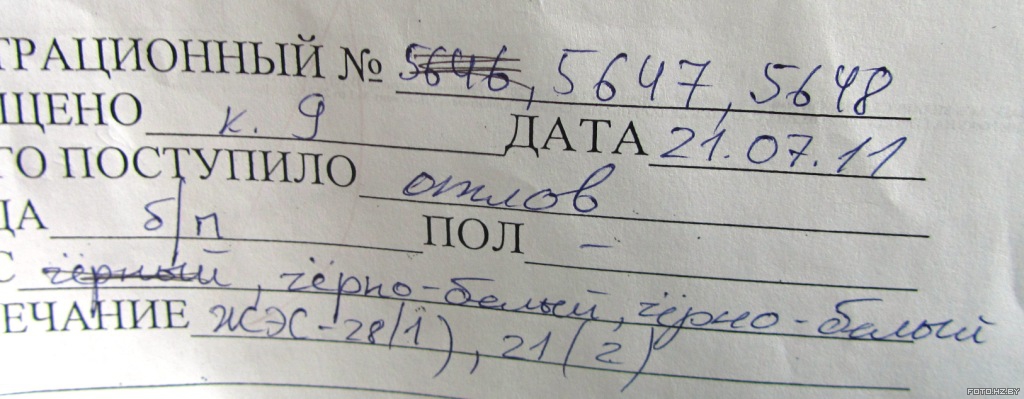 ТРАЦИОННЫЙ № 5646, 5647, 5648
ЩЕНО к. 9 ДАТА 21.07.11
ГО ПОСТУПИЛО отлов
ДА б/п ПОЛ –
С чёрный, чёрно-белый, чёрно-белый
ЕЧАНИЕ ЖЭС-28(1), 21(2)
FOTO.HZ.BY